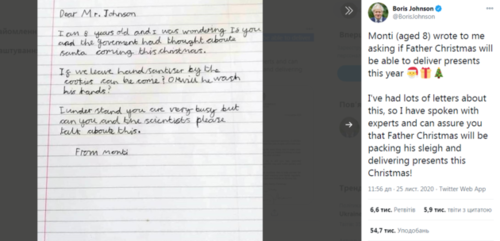 Dear Mr. Johnson
I am 8 years old and I was wondering if you
and the goverment had thought aboute
santa coming this christmas.
If we leave hand sanitiser by the
cookies can he come? Or will he wash
his hands?
I understand you are very busy but
can you and the scientists please
talk about this.
From monti
Boris Johnson
@BorisJohnson
Monti (aged 8) wrote to me
asking if Father Christmas will
be able to deliver presents
this year 🎅🎁🎄
I've had lots of letters about
this, so I have spoken with
experts and can assure you
that Father Christmas will be
packing his sleigh and
delivering presents this
Christmas!
11:56 дп · 25 лист. 2020 · Twitter Web App
6,6 тис. Ретвітів 5,9 тис. твіти з цитатою
54,7 тис. Уподобань